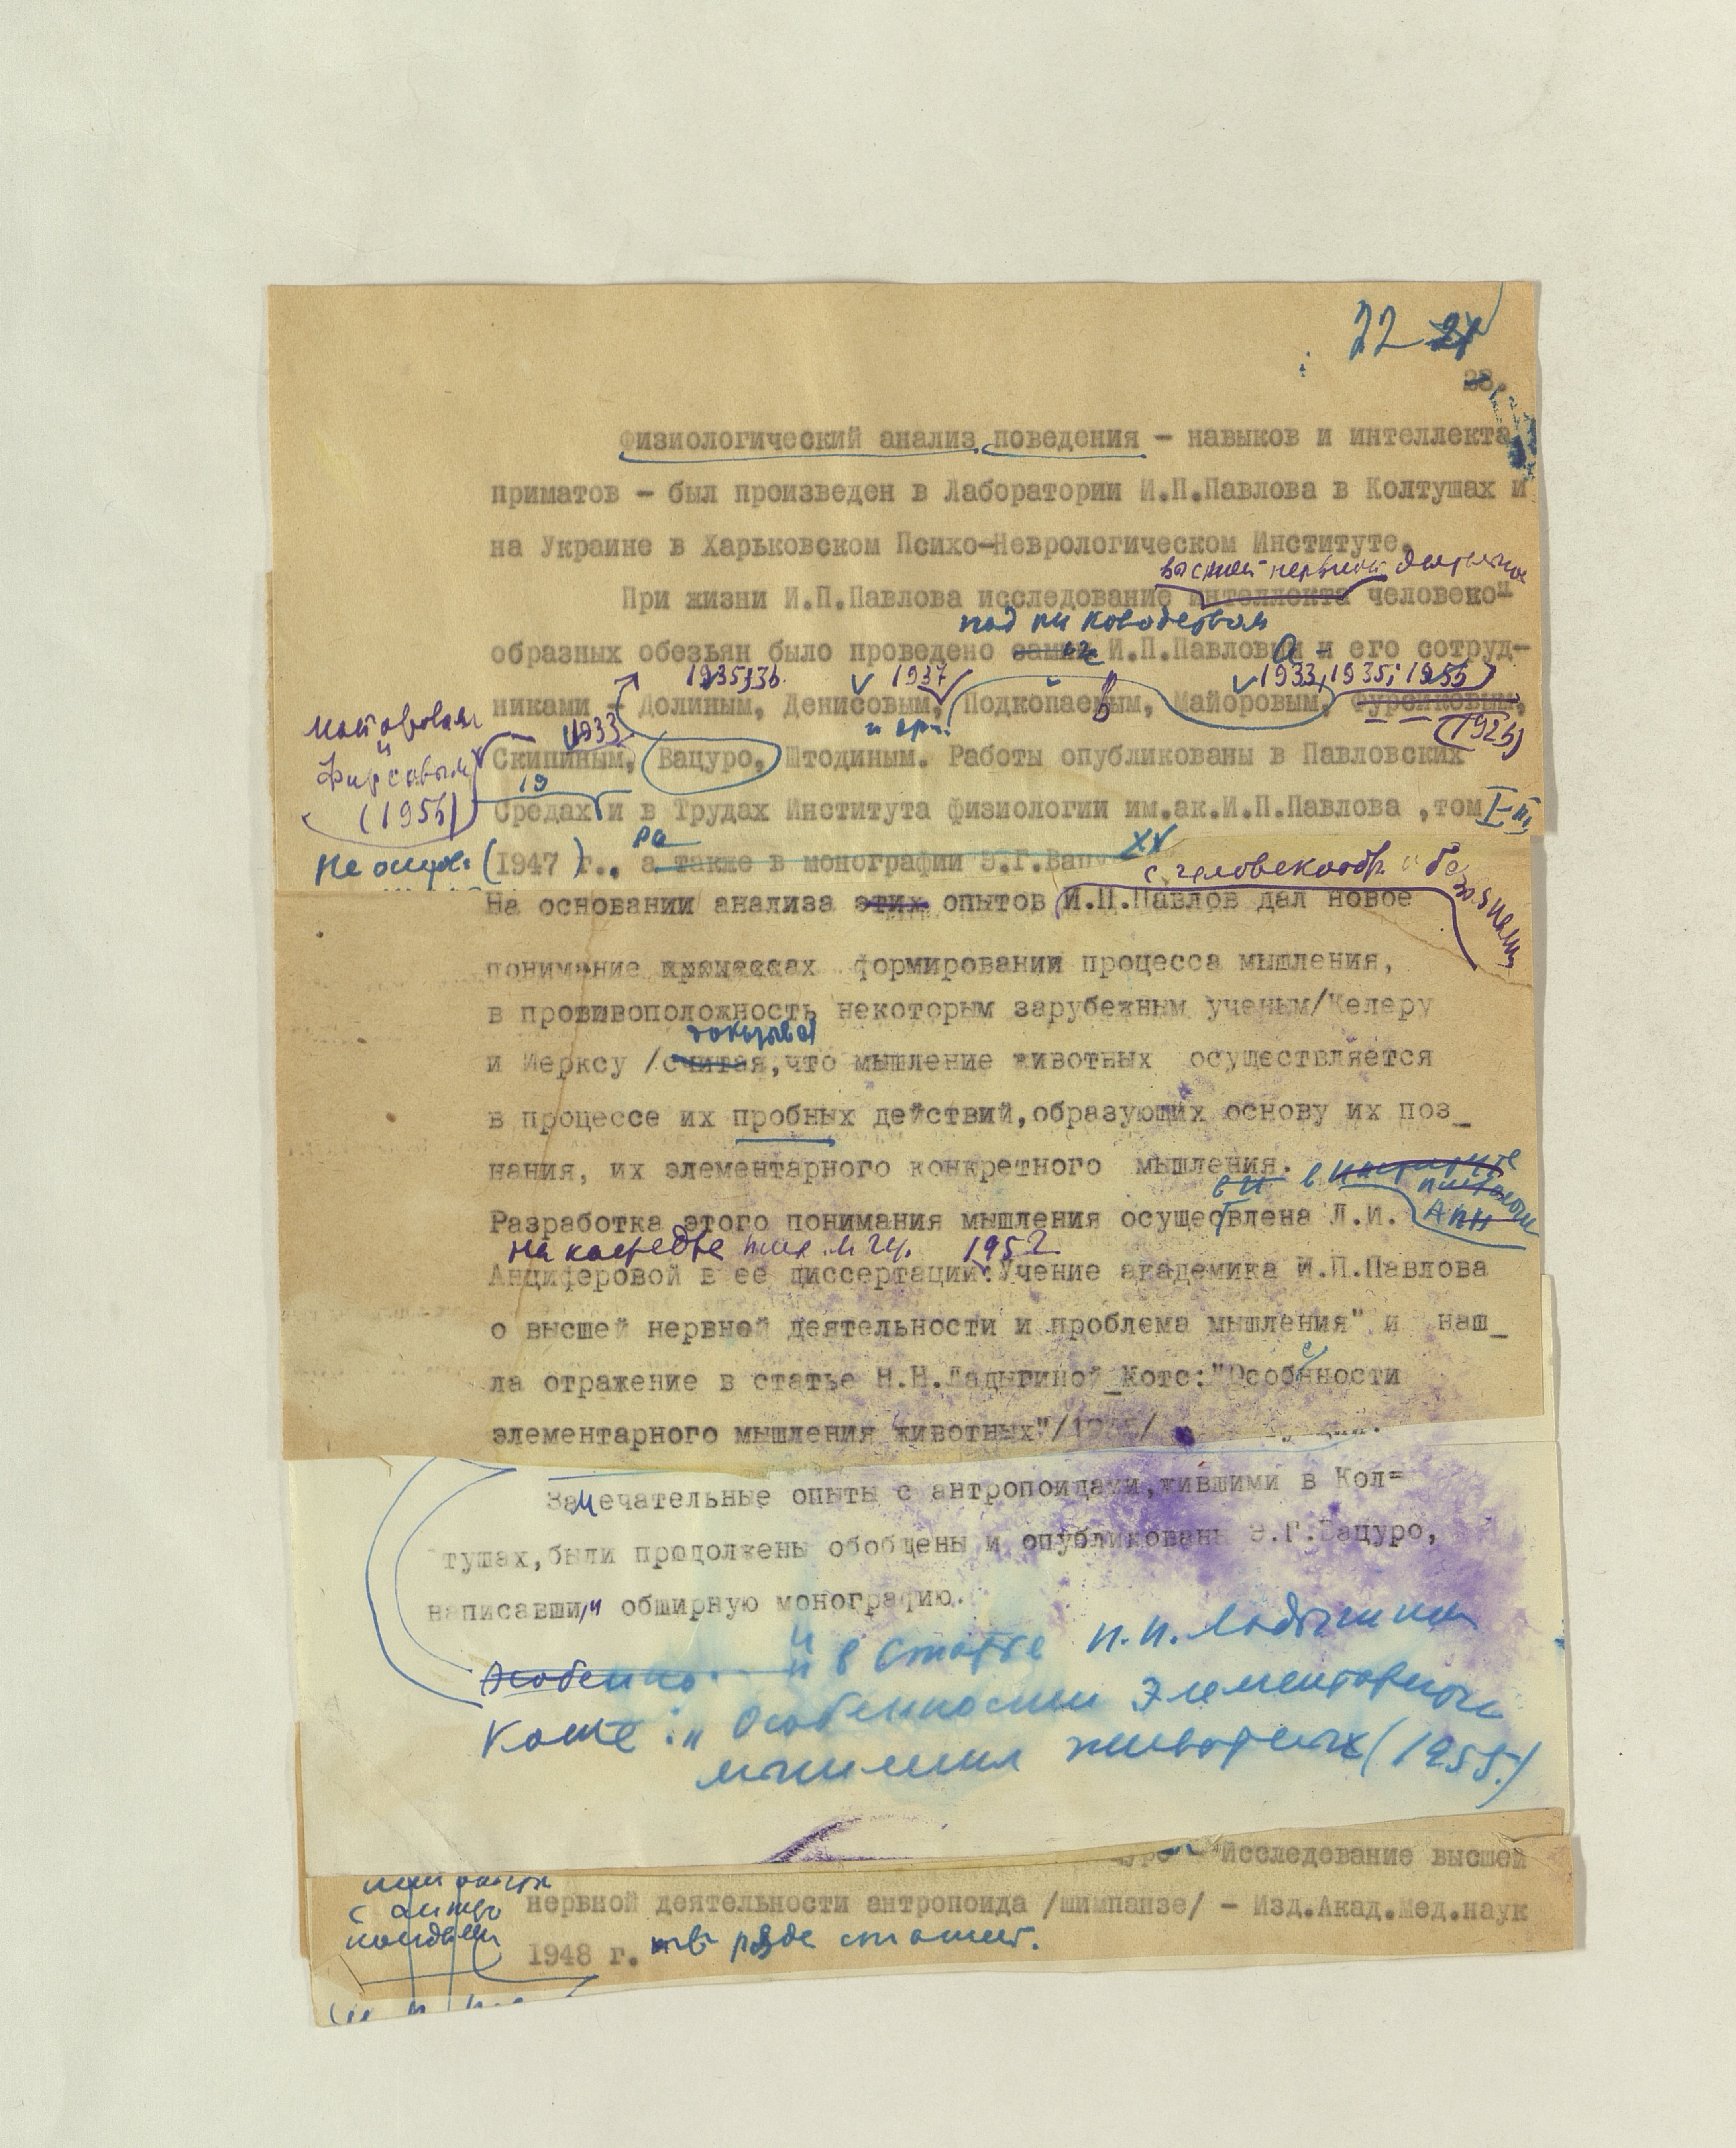 22 21
23.
Физиологический анализ поведения - навыков и интеллекта
приматов - был произведен в Лаборатории И.П.Павлова в Колтушах и
на Украине в Харьковском Психо-Неврологическом Институте.
высшей нервной деятельн
При жизни И.П.Павлова исследование интеллекта человеко-
под руководством
образных обезьян было проведено самим И.П.Павловым и его сотруд-
а
1935,36. 1937 1933, 1935; 1955
никами - Долиным, Денисовым, Подкопаевым, Майоровым, Фурсиковым,
1933 и др. (1925)
Скипиным, Вацуро, Штодиным. Работы опубликованы в Павловских
и
Фирсовым
(1955)
19
Средах и в Трудах Института физиологии им.ак.И.П.Павлова ,том I-III,
(1947) г., а также в монографии Э.Г.Вац
с человекообр. обезьянами
На основании анализа этих опытов И.П.Павлов дал новое
понимание формировании процесса мышления,
в провивоположность некоторым зарубежным ученым/Келеру
доказывая
и Иерксу /считая,что мышление животных осуществляется
в процессе их пробных действий,образующих основу их поз_
нания, их элементарного конкретного мышления.
в институте
психологии
АПН
Разработка этого понимания мышления осуществлена Л.И.
на кафедре 1952
Анциферовой в ее диссертации:Учение академика И.П.Павлова
о высшей нервной деятельности и проблема мышления" и наш_
ла отражение в статье Н.Н.Ладыгиной_Котс:"Особенности
элементарного мышления животных"/1955/
Замечательные опыты с антропоидами,жившими в Кол=
тушах,были продолжены обобщены и опубликованы Э.Г.Вацуро,
написавшим обширную монографию.
Особенно и в статье Н.Н. Ладыгиной
Котс: „Особенности элементарного
мышления животных (1955.)
Исследование высшей
нервной деятельности антропоида /шимпанзе/ - Изд.Акад.Мед.наук
1948 г. и в ряде статей.
с антро
поидами